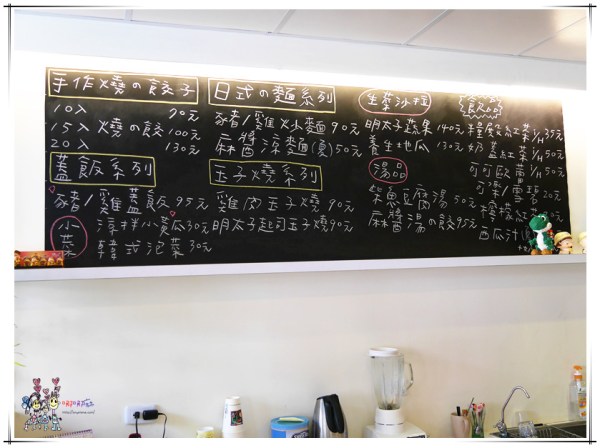 手作燒の餃子
10入 70元
15入 燒の餃 100元
20入 130元
蓋飯系列
豬/雞蓋飯 95元
小菜
涼拌小黃瓜30元
韓式泡菜30元
日式の麵系列
豬/雞炒麵90元
麻醬涼麵(夏)50元
玉子燒系列
雞肉玉子燒90元
明太子起司玉子燒90元
生菜沙拉
明太子蔬果140元
養生地瓜130元
湯品
柴魚豆腐湯50元
麻醬湯の餃95元
飲品
紅茶 35元
奶蓋紅茶 50元
可可歐蕾 50元
可樂/雪碧20元
檸檬紅茶
西瓜汁